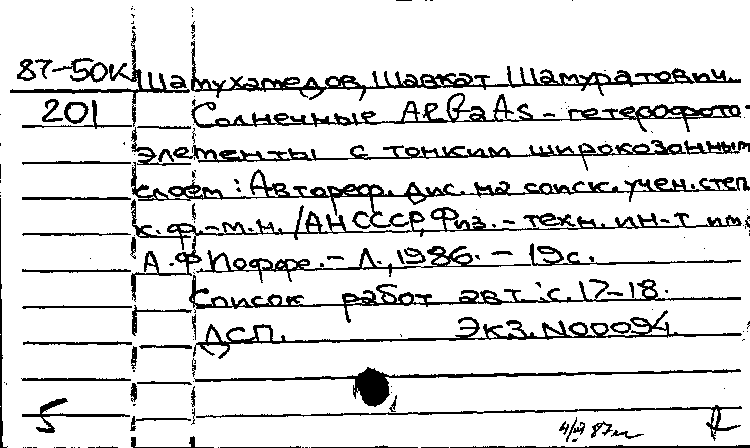 87-50К Шамухамедов, Шавкат Шамуратович.
201 Солнечные AlGaAs - гетерофото-
элементы с тонким широкозонным
слоем : Автореф. дис. на соиск. учен. степ.
к. ф.-м. н. /АН СССР, Физ.- техн. ин-т им.
А.Ф. Иоффе. - Л., 1986. - 19с.
Список работ авт.: с. 17-18.
ДСП. Экз. N00094.
5 87